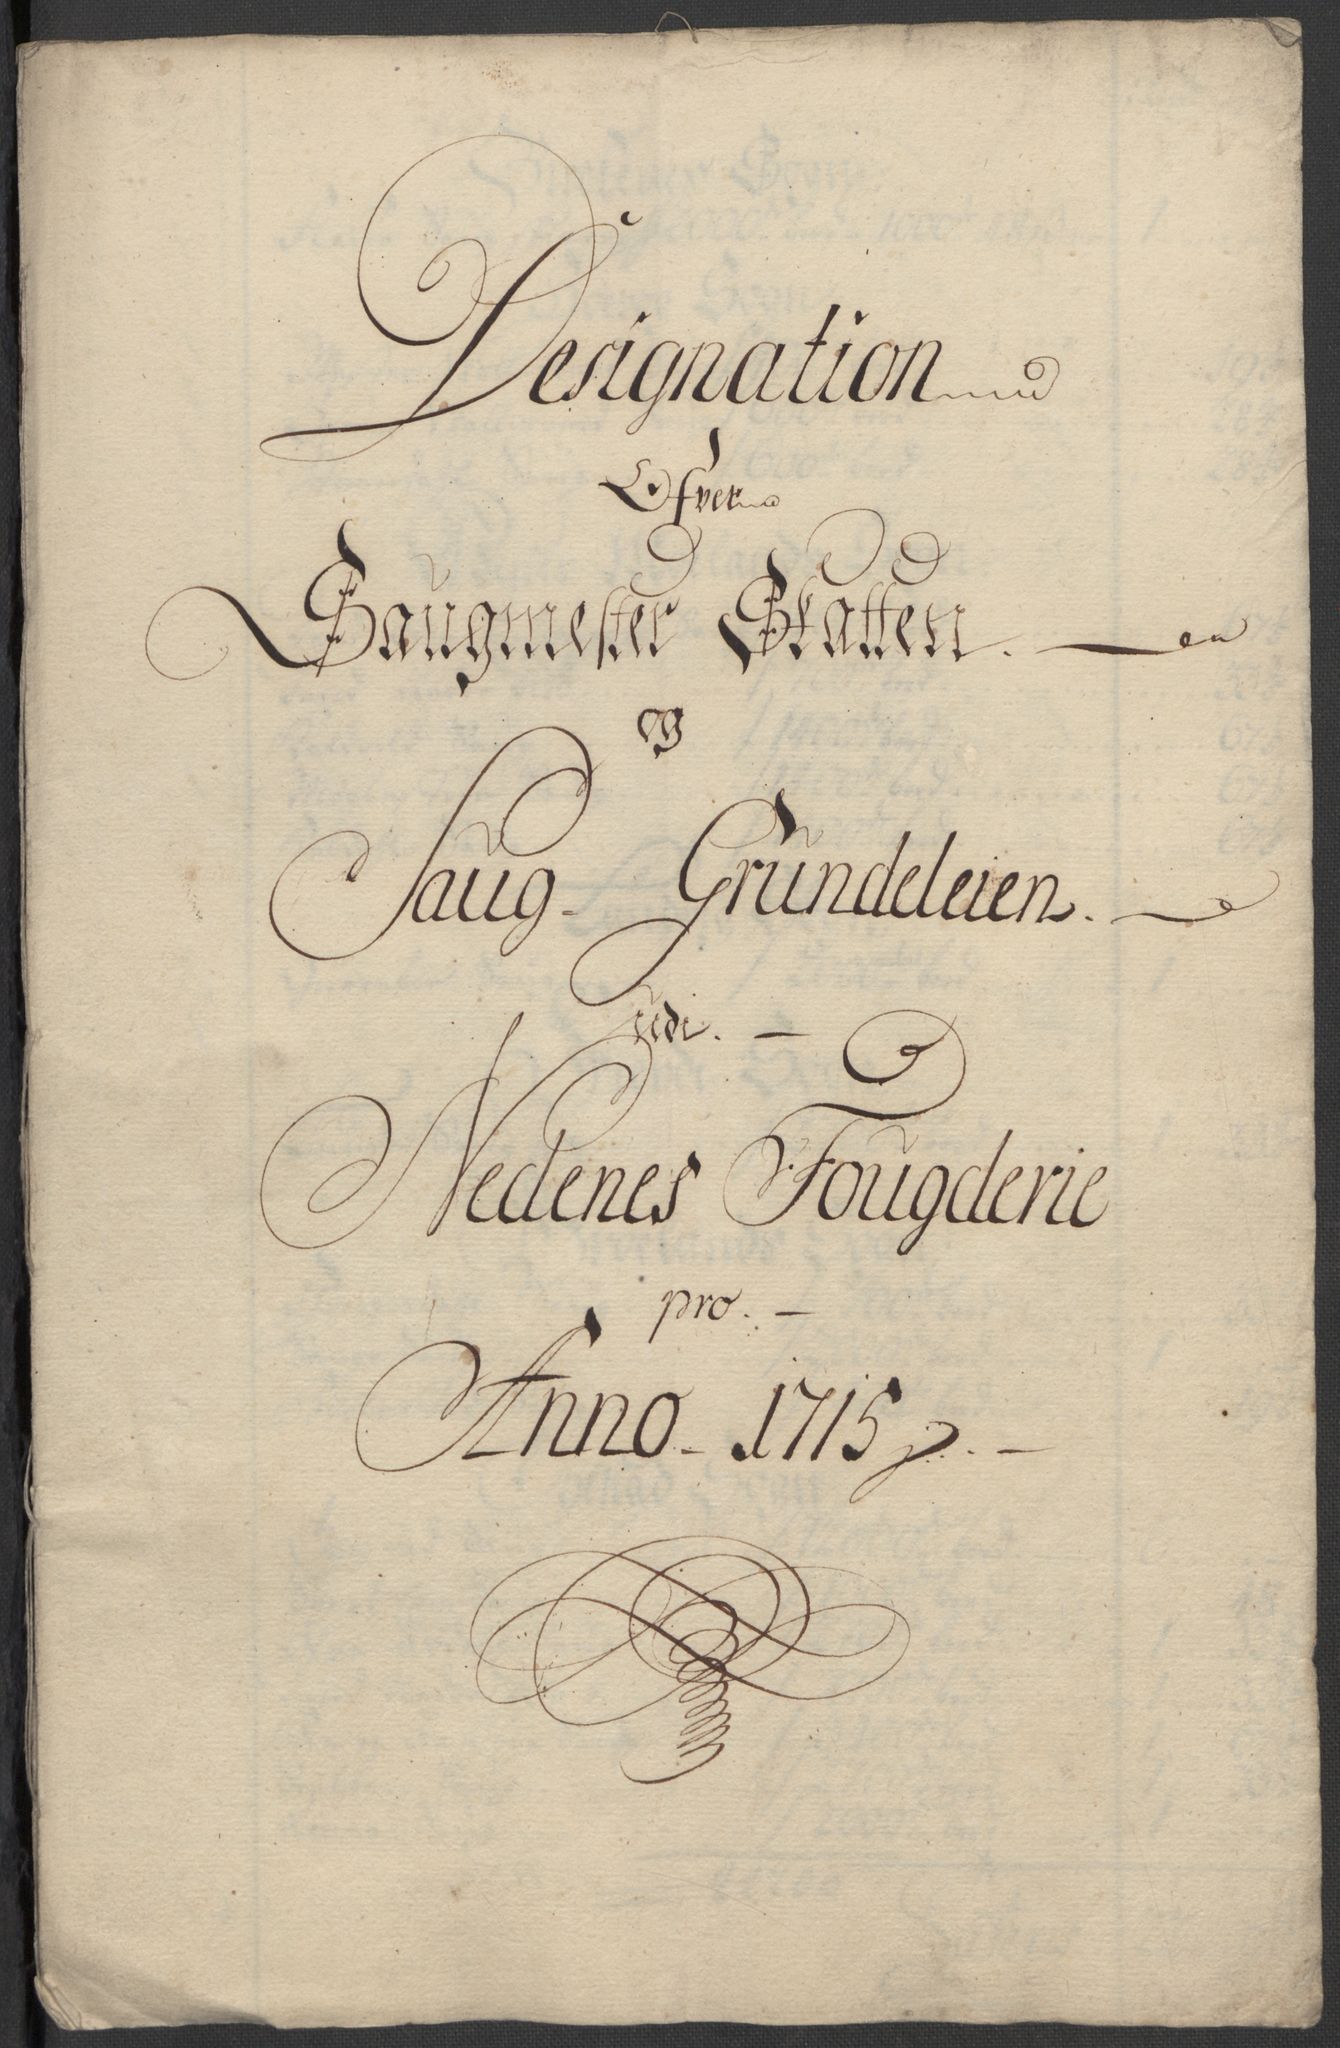 Designation
Ofver
Saugmester Skatten.
og
Saug- Grundeleien.
udi.
Nedenes Fougderie
pro.
Anno- 1715